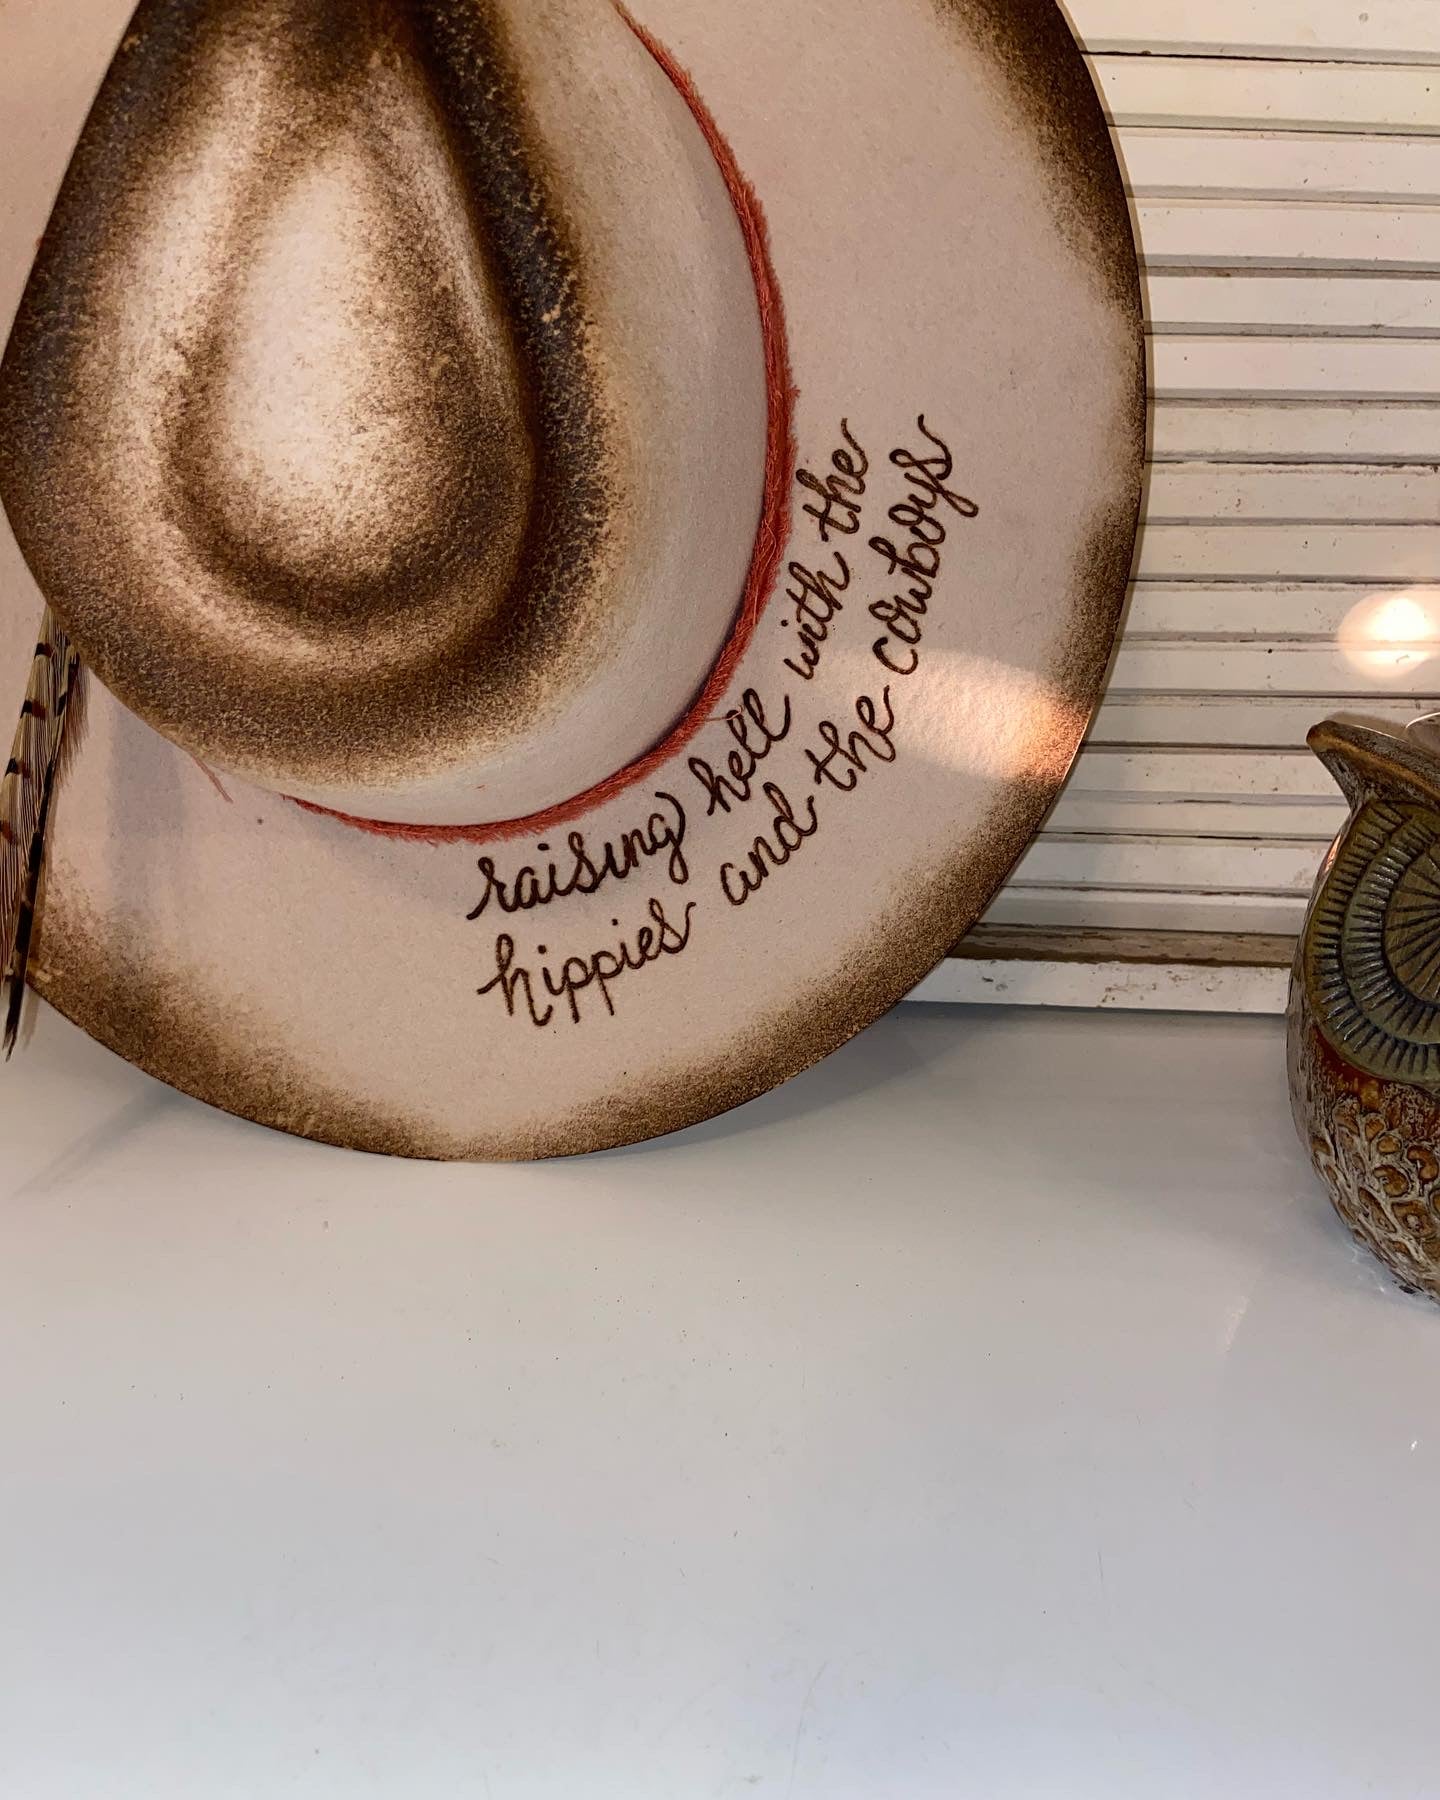 raising hell with the
hippies and the cowboys